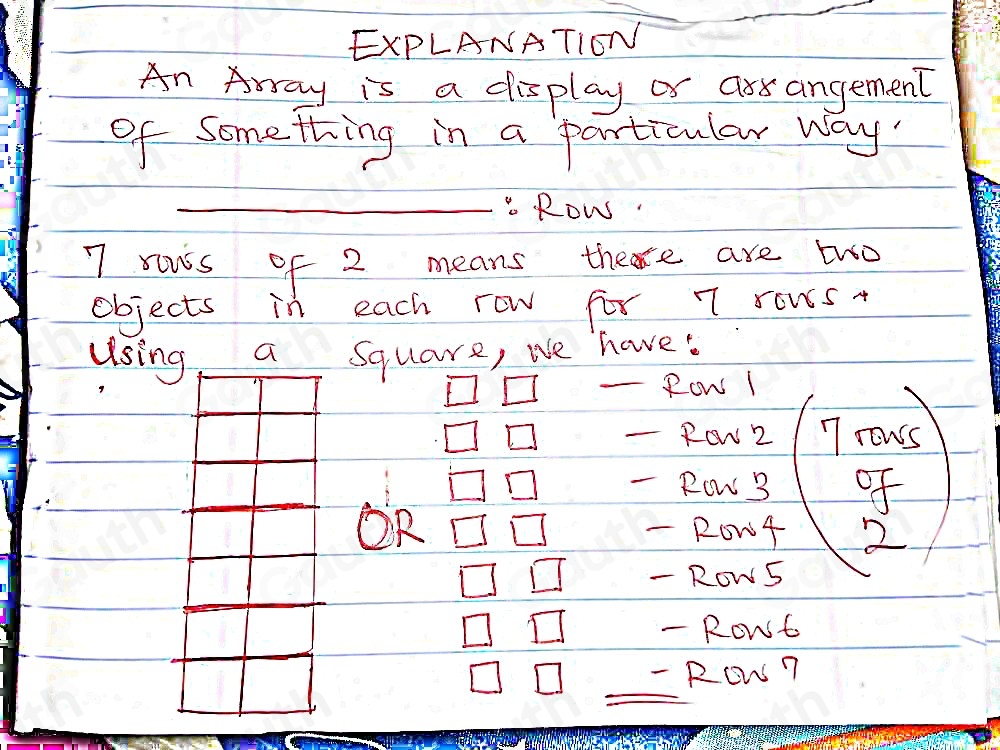 EXPLANATION
An Array is a display or arrangement
of Something in a particular way.
: Row.
7 rows of 2 means there are two
objects in each row for 7 rows.
Using a square, we have:
- Row 1
- Row 2
- Row 3
OR - Row 4
- Row 5
- Row 6
- Row 7
7 rows
of
2